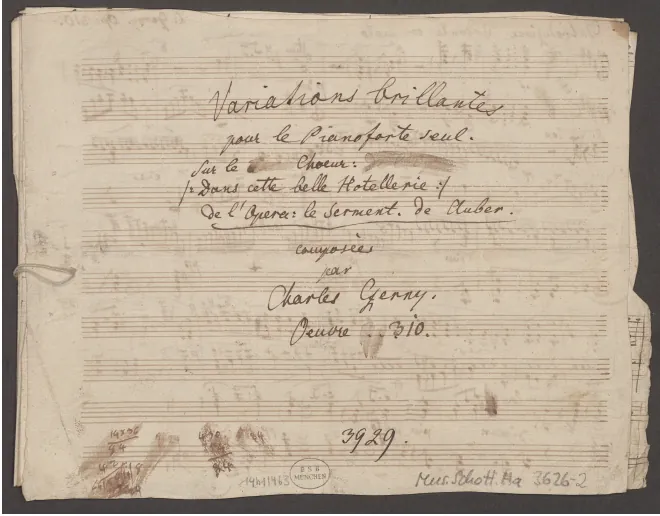 Variations brillantes
pour le Pianoforte seul.
Sur le Choeur:
/: Dans cette belle Hotellerie :/
de l'Opera: le Serment. de Auber.
composées
par
Charles Czerny.
Oeuvre 310.
3929.
BSB
MÜNCHEN
Mus.Schott.Ha 3626-2